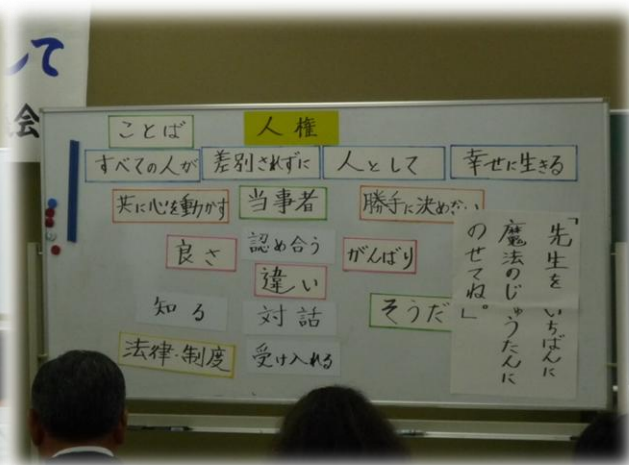 して
会
ことば
人権
すべての人が 差別されずに 人として 幸せに生きる
共に心を動かす 当事者 勝手に決めない
良さ 認め合う がんばり
違い
知る 対話 そうだ
法律・制度 受け入れる
「先生を いちばんに
魔法のじゅうたんに
のせてね」。